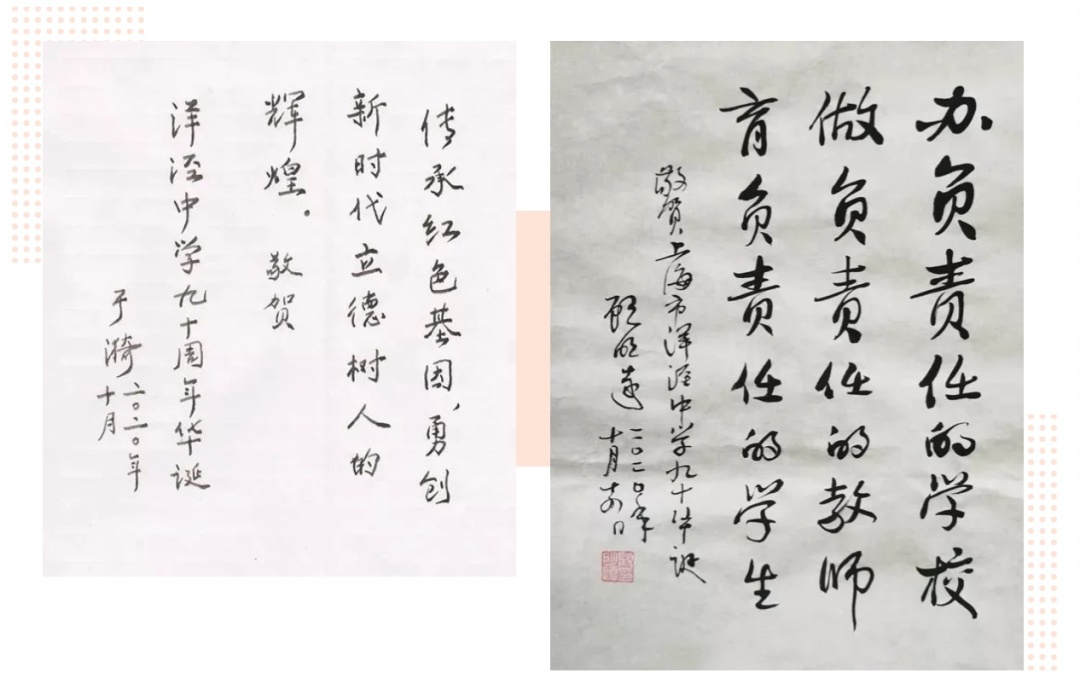 传承红色基因，勇创
新时代立德树人的
辉煌。 敬贺
洋泾中学九十周年华诞
于漪 二〇二〇年
十月
办负责任的学校
做负责任的教师
育负责任的学生
敬贺上海市洋泾中学九十华诞
顾明远 二〇二〇年
十月